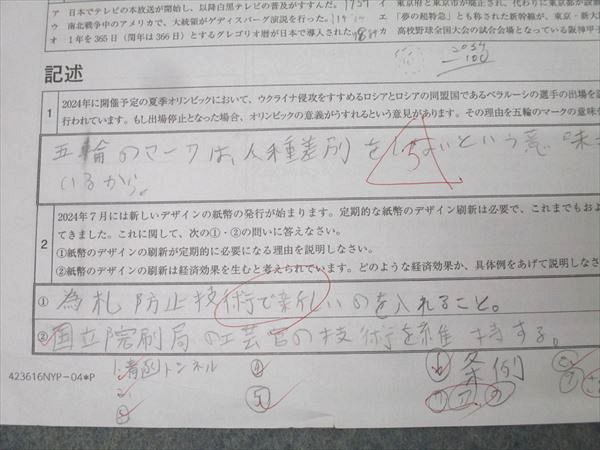 ア 日本でテレビの本放送が開始し、以降白黒テレビの普及がすすんだ。
エ 東京府と東京市が廃止され、代わりに東京都が設
ウ 南北戦争中のアメリカで、大統領がゲティスバーグ演説を行った。
オ 「夢の超特急」とも称された新幹線が、東京・新大
オ 1年を365日（閏年は366日）とするグレゴリオ暦が日本で導入された。
カ 高校野球全国大会の試合会場となっている阪神甲子
100
記述
1 2024年に開催予定の夏季オリンピックにおいて、ウクライナ侵攻をすすめるロシアとロシアの同盟国であるベラルーシの選手の出場を認
行われています。もし出場停止となった場合、オリンピックの意義がうすれるという意見があります。その理由を五輪のマークの意味
五輪のマークは、人種差別をしないという意味
いるから。
2 2024年7月には新しいデザインの紙幣の発行が始まります。定期的な紙幣のデザイン刷新は必要で、これまでもおよ
てきました。これに関して、次の①・②の問いに答えなさい。
①紙幣のデザインの刷新が定期的に必要になる理由を説明しなさい。
②紙幣のデザインの刷新は経済効果を生むと考えられています。どのような経済効果か、具体例をあげて説明しなさ
① 為札防止技術で新しいのを入れること。
② 国立院刷局の工芸官の技術を維持する。
423616NYP-04*P
1 青函トンネル
② ⑥ 条例
⑤